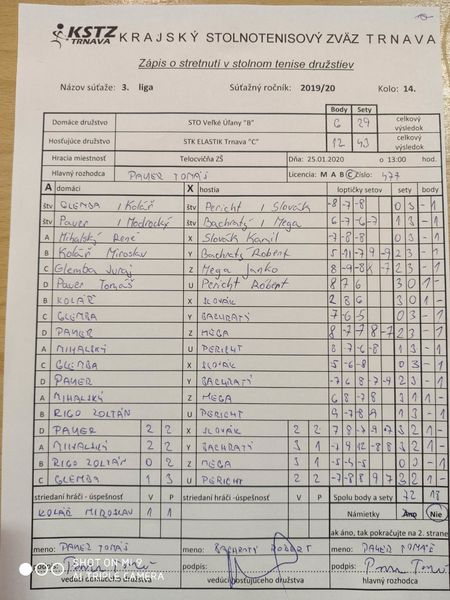 KSTZ TRNAVA KRAJSKÝ STOLNOTENISOVÝ ZVÄZ TRNAVA
Zápis o stretnutí v stolnom tenise družstiev
Názov súťaže: 3. liga Súťažný ročník: 2019/20 Kolo: 14.
Body Sety
Domáce družstvo STO Veľké Úľany "B" 6 29 celkový výsledok
Hosťujúce družstvo STK ELASTIK Trnava "C" 12 43 celkový výsledok
Hracia miestnosť Telocvičňa ZŠ Dňa: 25.01.2020 o 13:00 hod.
Hlavný rozhodca PAUER TOMÁŠ Licencia: M A B C číslo: 477
A domáci X hostia loptičky setov sety body
štv GLEMBA / Kolář štv Pericht / Slovák -8 -7 -8 0 3 - 1
štv Pauer / Modrocký štv Bachratý / Mega 6 -7 -6 -7 1 3 - 1
A Mihalský René X Slovák Kamil -7 -8 -8 0 3 - 1
B Kolář Miroslav Y Bachratý Róbert 2 3 - 1
C Glemba Juraj Z Mega Janko 2 3 - 1
D Pauer Tomáš U Pericht Róbert 8 7 6 3 0 1 -
B KOLÁŘ X SLOVÁK 2 8 6 3 0 1 -
C GLEMBA Y BACHRATÝ -7 -6 -5 0 3 - 1
D PAUER Z MEGA 8 -7 7 8 -7 2 3 - 1
A MIHALSKÝ U PERICHT 8 -7 -6 -8 1 3 - 1
C GLEMBA X SLOVÁK -5 -6 -8 0 3 - 1
D PAUER Y BACHRATÝ 2 3 - 1
A MIHALSKÝ Z MEGA 6 8 -7 8 3 1 1 -
B RIGO ZOLTÁN U PERICHT 1 3 - 1
D PAUER 2 2 X SLOVÁK 2 2 3 2 1 -
A MIHALSKÝ 2 2 Y BACHRATÝ 3 1 2 3 - 1
B RIGO ZOLTÁN 0 2 Z MEGA 3 1 0 3 - 1
C GLEMBA 1 3 U PERICHT 2 2 -7 -8 8 9 7 3 2 1 -
striedaní hráči - úspešnosť V P striedaní hráči - úspešnosť V P Spolu body a sety 72 18
KOLÁŘ MIROSLAV 1 1 Námietky Áno Nie
ak áno, tak pokračujte na 2. strane
meno: PAUER TOMÁŠ meno: BACHRATÝ ROBERT meno: PAUER TOMÁŠ
podpis: podpis: podpis:
vedúci domáceho družstva vedúci hosťujúceho družstva hlavný rozhodca
SHOT ON MI 9
AI TRIPLE CAMERA